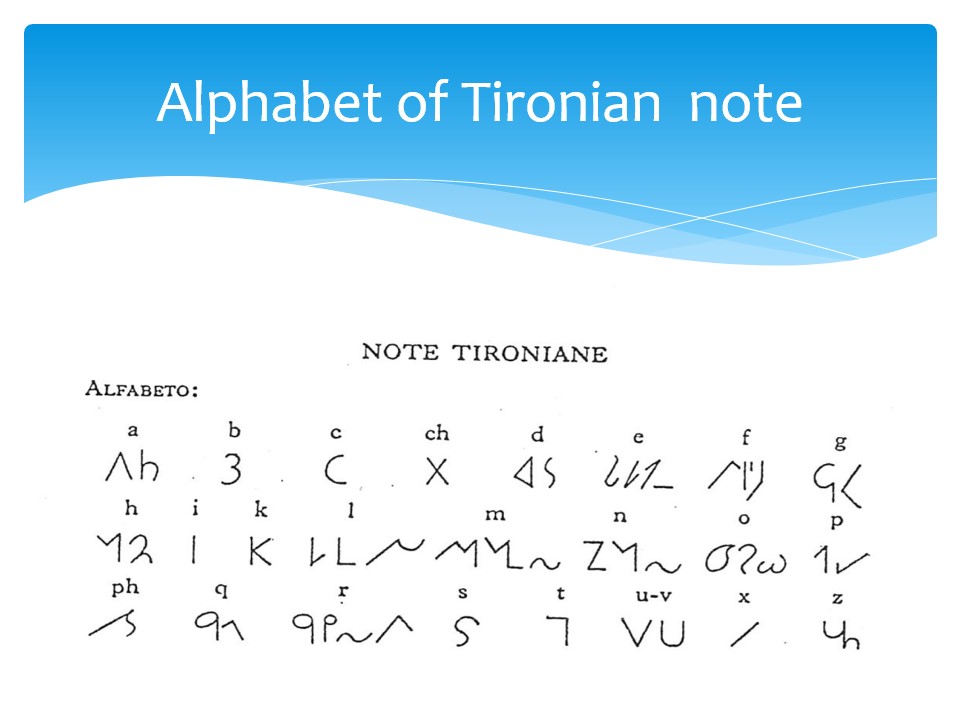 Alphabet of Tironian  note
NOTE TIRONIANE
ALFABETO:
a b c ch d e f g
h i k l m n o p
ph q r s t u-v x z